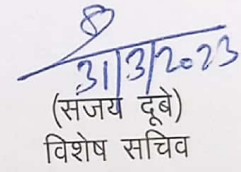 31/3/2023
(संजय दूबे)
विशेष सचिव